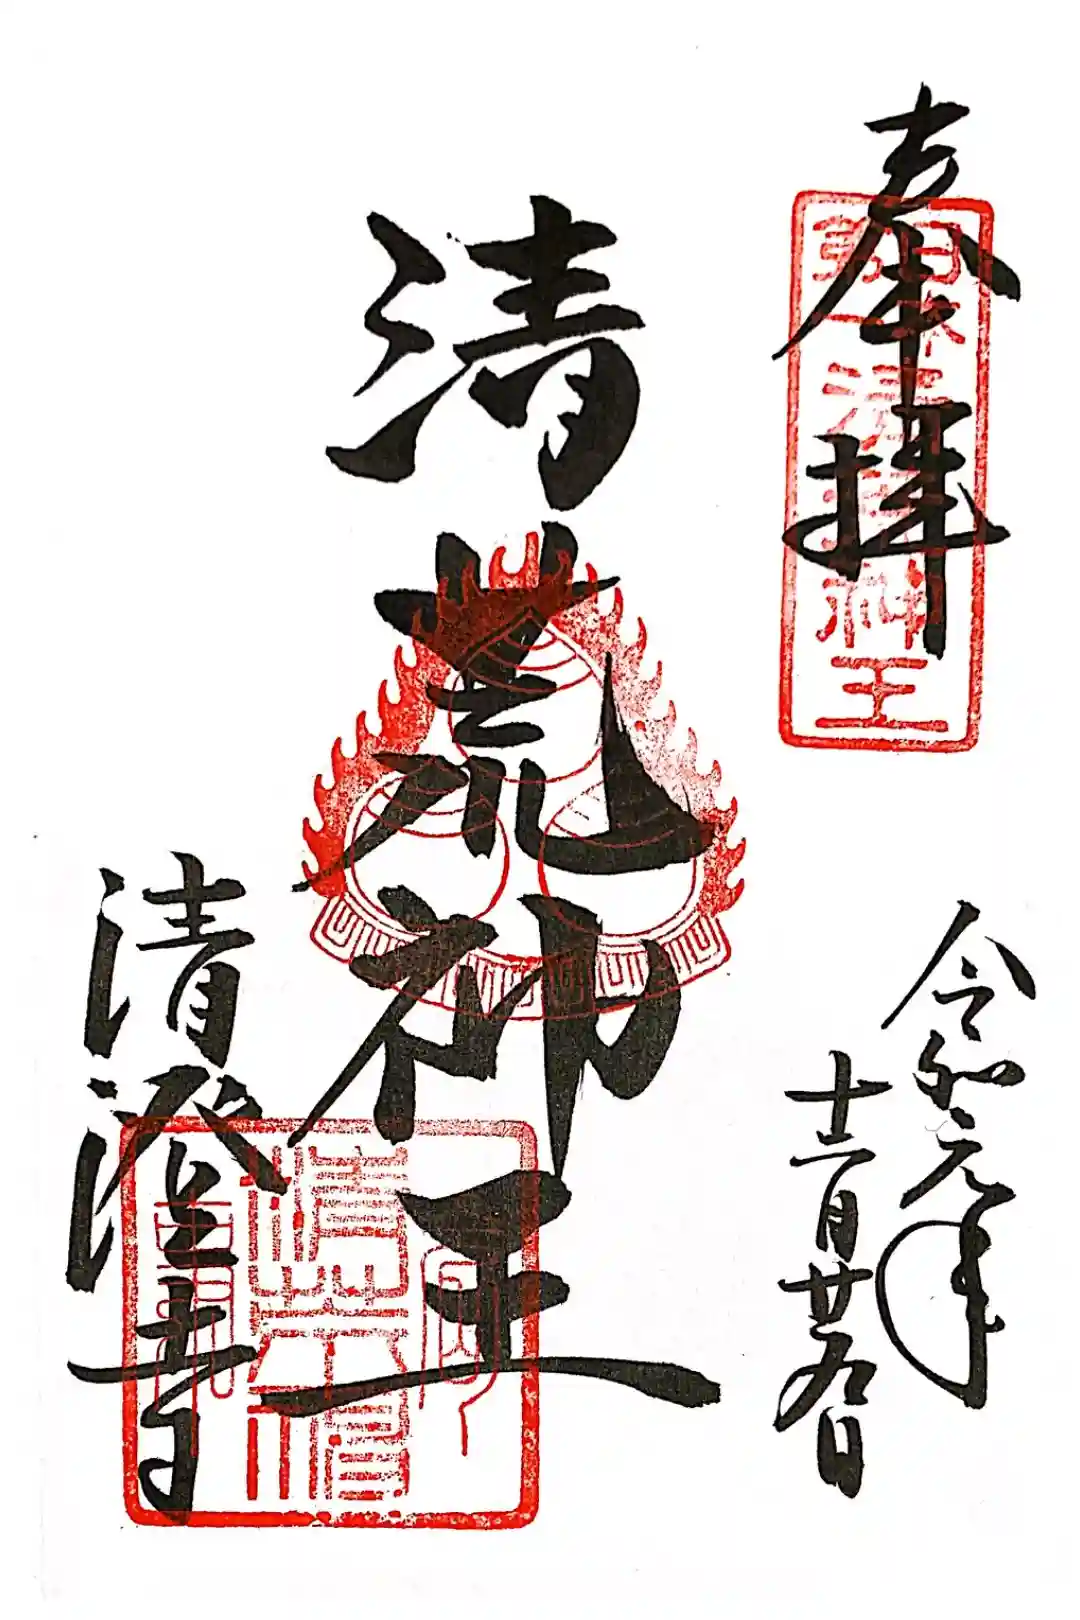 奉拝
日本第一清荒神王
令和元年
十二月廿九日
清荒神王
清澄寺